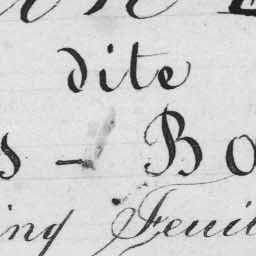 dite
s - Bo
ing Feuil